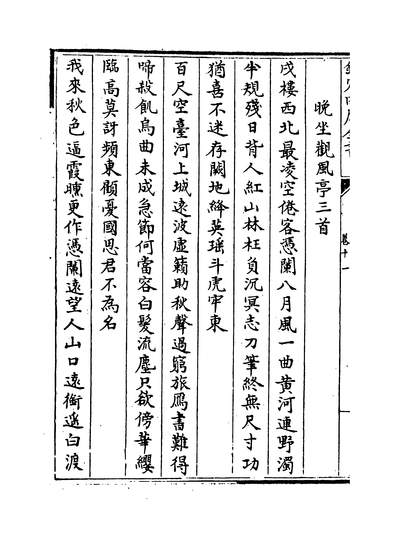 晚坐觀風亭三首
戍樓西北最凌空倦客憑闌八月風一曲黄河連野濁
半規殘日背人紅山林枉負沉冥志刀筆終無尺寸功
猶喜不迷存闕地絳英瑶斗虎牢東
百尺空臺河上城遠波虛籟助秋聲過窮旅鴈書難得
啼殺飢烏曲未成急節何當容白髮流塵只欲傍華纓
臨高莫訝頻東顧憂國思君不為名
我來秋色逼霞曛更作憑闌遠望人山口遠銜遥白渡
卷十一